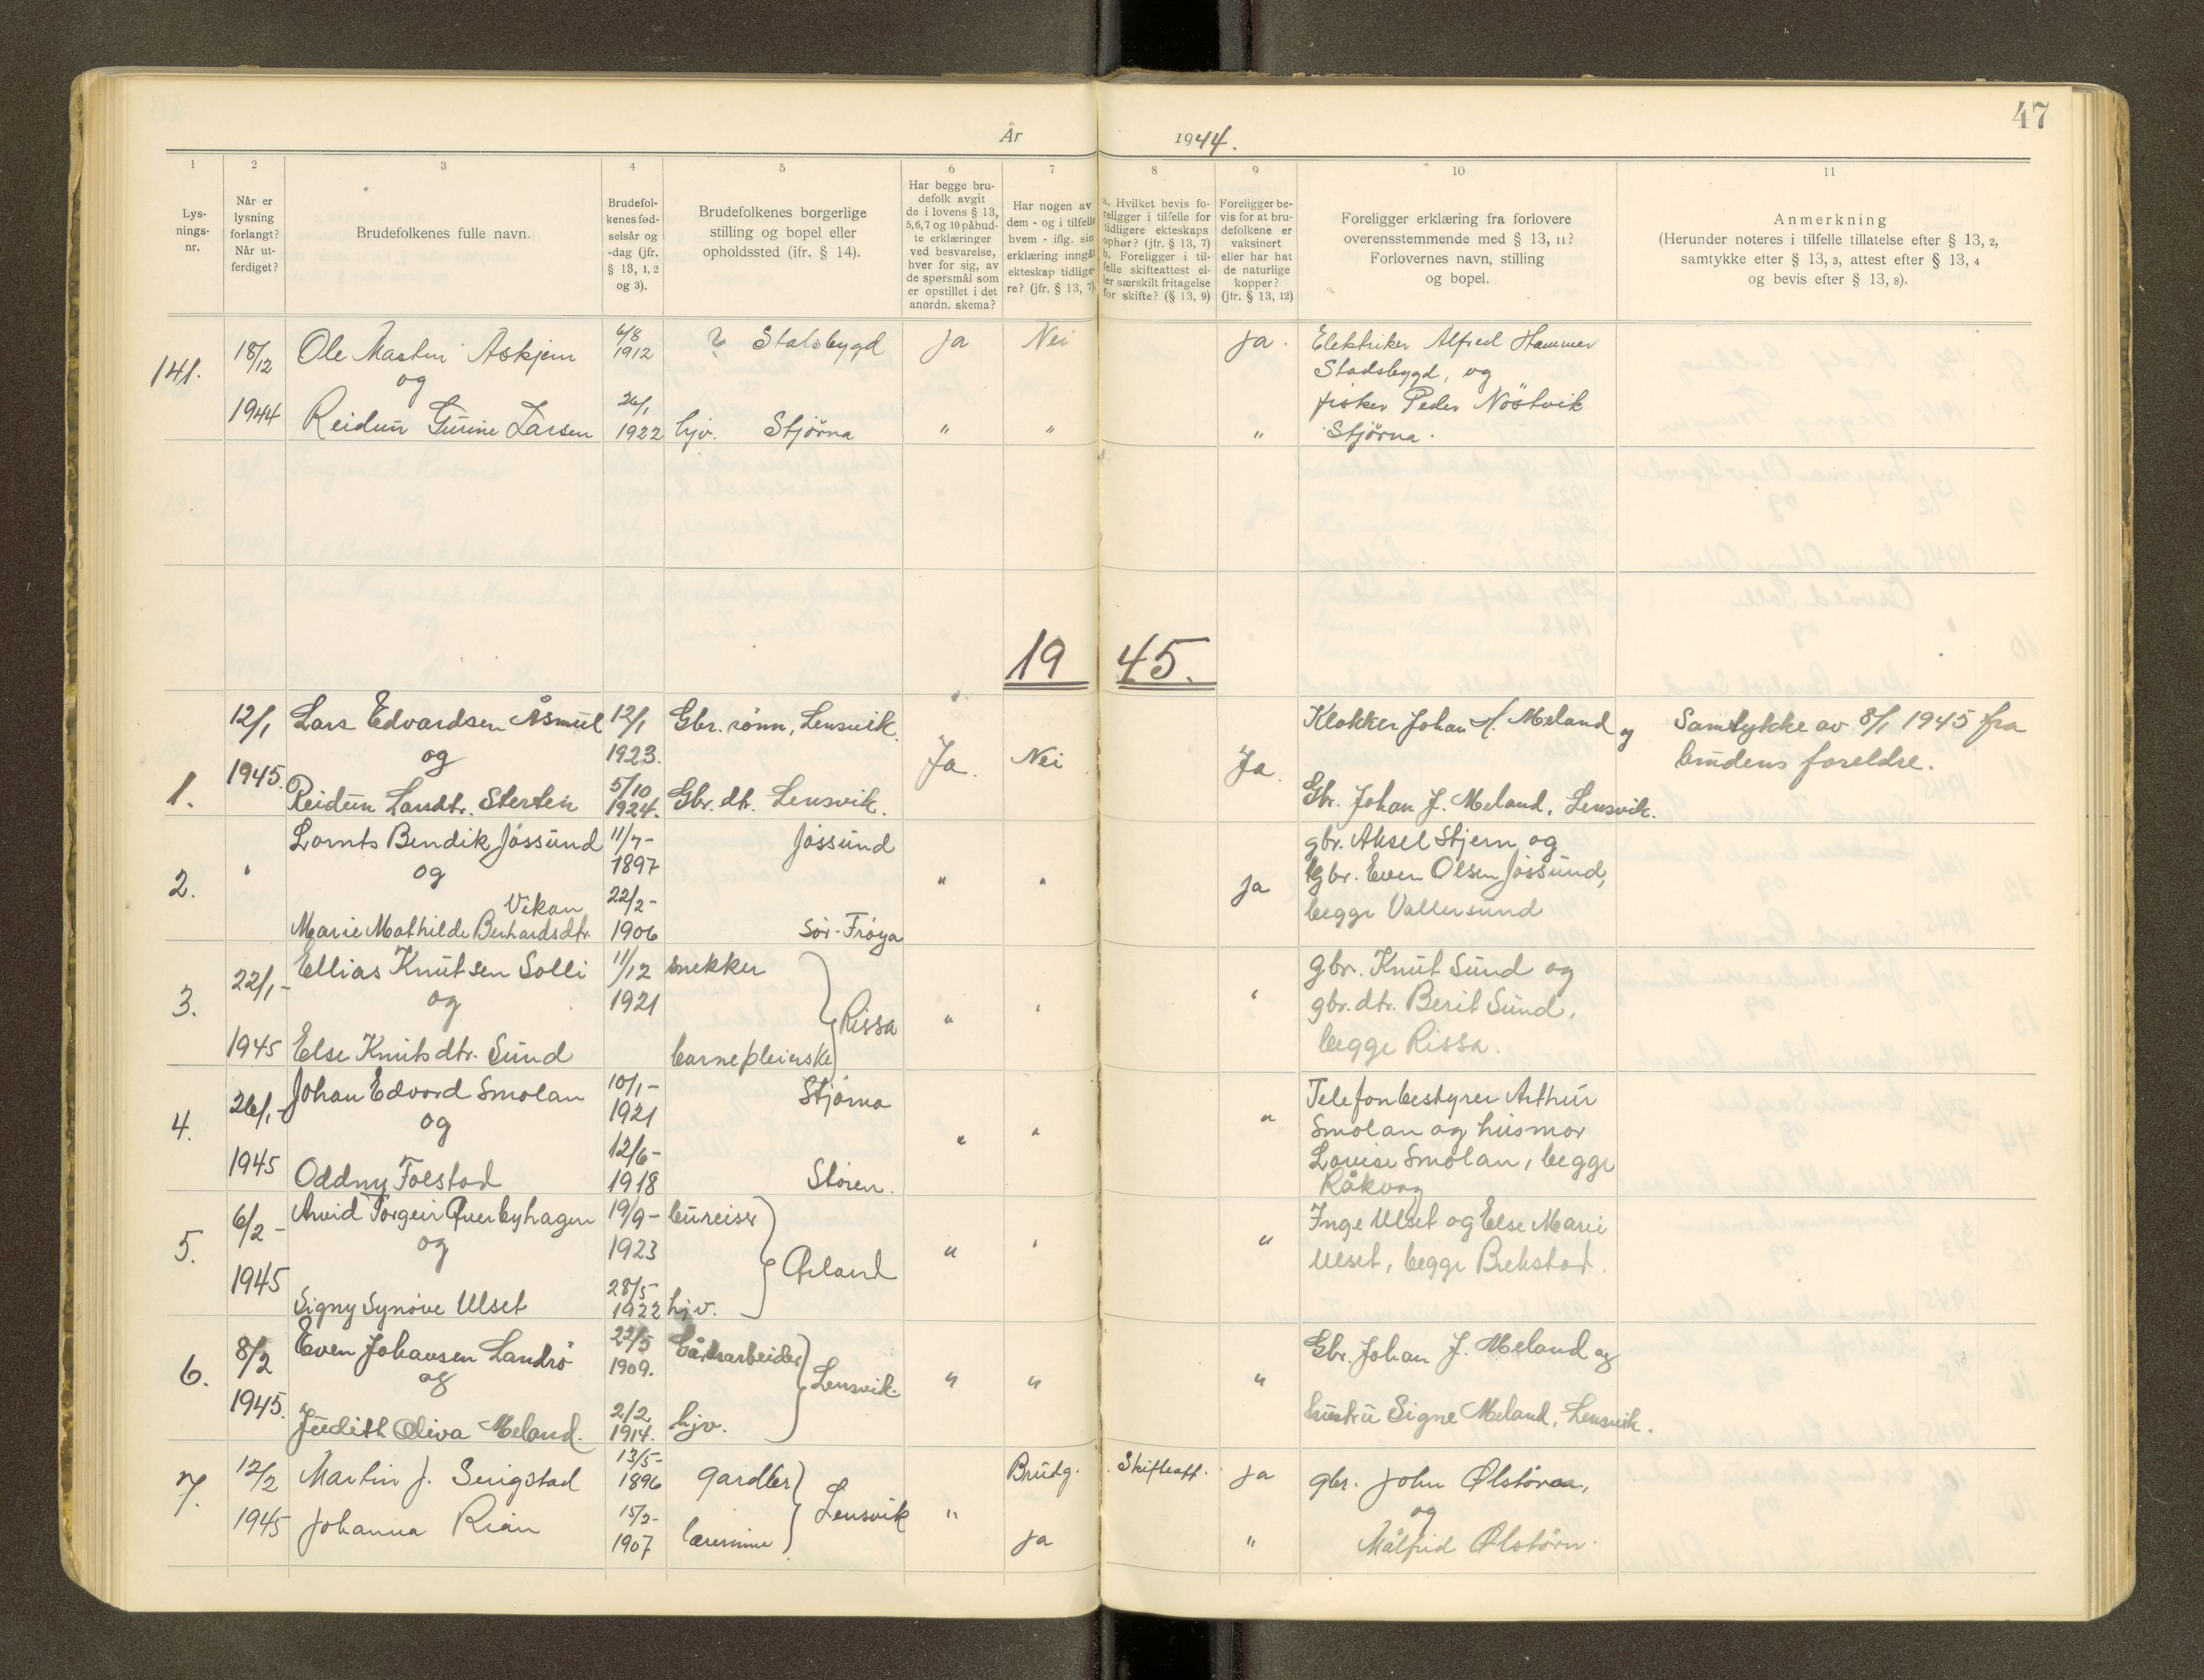 47
År 1944.
1
2
3
4
5
6
7
8
9
10
11
Lys-
nings-
nr.
Når er
lysning
forlangt?
Når ut-
ferdiget?
Brudefolkenes fulle navn.
Brudefol-
kenes fød-
selsår og
-dag (jfr.
§ 13, 1, 2
og 3).
Brudefolkenes borgerlige
stilling og bopel eller
opholdssted (jfr. § 14).
Har begge bru-
defolk avgit
de i lovens § 13,
5,6,7 og 10 påbud-
te erklæringer
ved besvarelse,
hver for sig, av
de spørsmål som
er opstillet i det
anordn. skema?
Har nogen av
dem - og i tilfelle
hvem - iflg. sin
erklæring inngåt
ekteskap tidlige-
re? (jfr. § 13, 7).
a. Hvilket bevis fo-
religger i tilfelle for
tidligere ekteskaps
ophør? (jfr. § 13, 7)
b. Foreligger i til-
felle skifteattest el-
ler særskilt fritagelse
for skifte? (§ 13, 9)
Foreligger be-
vis for at bru-
defolkene er
vaksinert
eller har hat
de naturlige
kopper?
(jfr. § 13, 12)
Foreligger erklæring fra forlovere
overensstemmende med § 13, 11?
Forlovernes navn, stilling
og bopel.
Anmerkning
(Herunder noteres i tilfelle tillatelse efter § 13, 2,
samtykke efter § 13, 3, attest efter § 13, 4
og bevis efter § 13, 8).
141.
18/12
1944
Ole Martin Askjem
og
Reidun Gurine Larsen
6/8
1912
26/1
1922
? Stadsbygd
hjv. Stjørna
Ja
"
Nei
"
Ja.
"
Elektriker Alfred Hammer
Stadsbygd, og
fisker Peder Nöstvik
Stjörna.
1945.
1.
12/1
1945.
Lars Edvardsen Åsmul
og
Reidun Larsdtr. Sterten
12/1
1923.
5/10
1924.
Gbr. sønn, Lensvik.
Gbr. dt. Lensvik.
Ja.
Nei
Ja.
Klokker Johan A. Meland og
Gbr. Johan J. Meland, Lensvik.
Samtykke av 8/1 1945 fra
brudens foreldre.
2.
"
Lornts Bendik Jøssund
og
Vikan
Marie Mathilde Berhardsdtr.
11/7-
1897
22/2-
1906
Jøssund
Sør-Frøya
"
"
Ja
gbr. Aksel Stjern og
gbr. Even Olsen Jøssund,
begge Vallersund
3.
22/1-
1945
Ellias Knutsen Solli
og
Else Knutsdtr. Sund
11/12
1921
snekker
Rissa
barnepleierske
"
"
"
gbr. Knut Sund og
gbr. dtr. Berit Sund,
begge Rissa.
4.
26/1-
1945
Johan Edvard Smolan
og
Oddny Folstad
10/1-
1921
12/6-
1918
Stjørna
Støren.
"
"
"
Telefonbestyrer Arthur
Smolan og husmor
Lovise Smolan, begge
Råkvåg
5.
6/2-
1945
Arvid Torgeir Querbyhagen
og
Signy Synøve Ulset
19/9-
1923
28/5-
1922
bureiser
Ørland
hjv.
"
"
"
Inge Ulset og Else Marie
Ulset, begge Brekstad.
6.
8/2
1945.
Even Johansen Landrø
og
Judith Oliva Meland.
22/5
1909.
2/2
1914.
Gårdsarbeider
Lensvik.
hjv.
"
"
"
Gbr. Johan J. Meland og
hustru Signe Meland, Lensvik.
7.
12/2
1945
Martin J. Singstad
Johanna Rian
13/5-
1896
15/3-
1907
gardbr
Lensvik
lærerinne
"
Brudg.
ja
Skifteatt.
ja
"
gbr. John Ølstøren,
og
Målfrid Ølstørn.